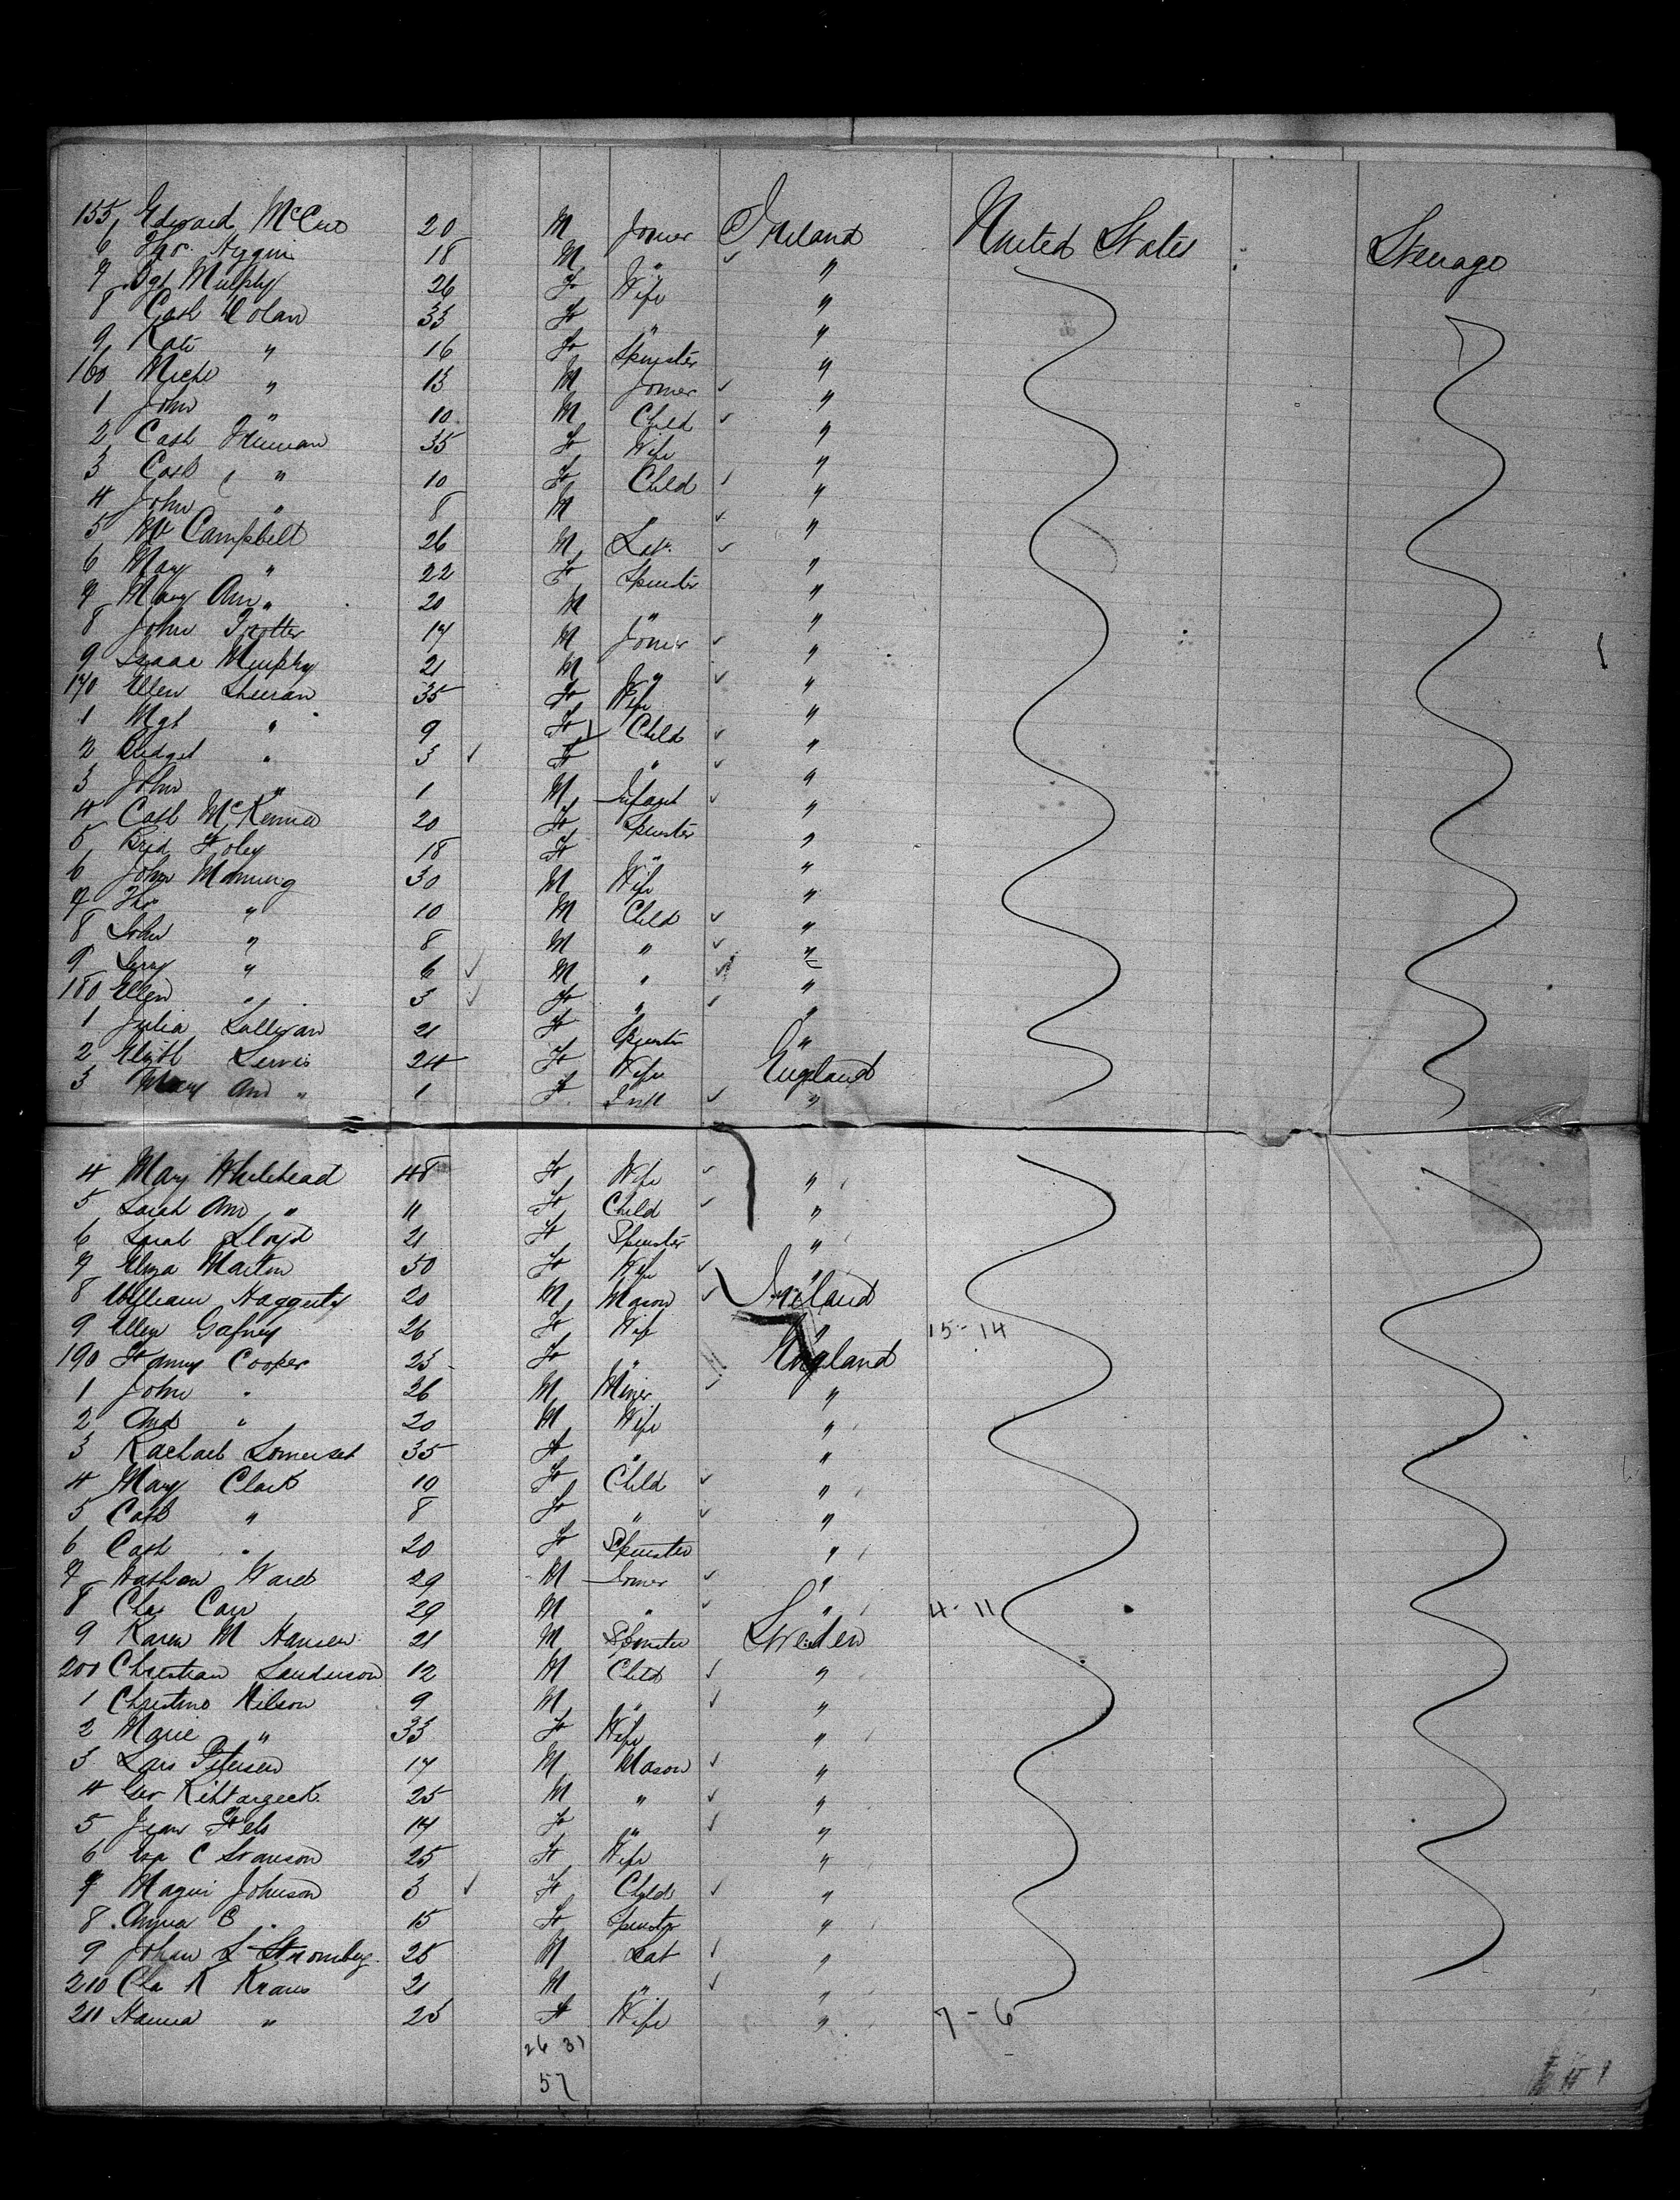 155 Edward McCue 20 M Joiner Ireland United States Steerage
6 Thos. Higgins 18 M " "
7 Bgt Murphy 26 F Wife "
8 Cath Dolan 33 F " "
9 Kate " 16 F Spinster "
160 Michl " 13 M Joiner "
1 John " 10 M Child "
2 Cath 35 F Wife "
3 Cath " 10 F Child "
4 John " 8 M " "
5 Campbell 26 M Lab. "
6 Mary " 22 F Spinster "
7 Mary Ann " 20 M " "
8 John Trotter 17 M Joiner "
9 Isaac Murphy 21 M " "
170 Ellen Sheeran 35 F Wife "
1 Mgt " 9 F Child "
2 Bridget " 3 F " "
3 John " 1 M Infant "
4 Cath McKenna 20 F Spinster "
5 Brid Foley 18 F " "
6 John Manning 30 M Wife "
7 Tho " 10 M Child "
8 John " 8 M " "
9 " 6 M " "
180 Ellen " 3 F " "
1 Julia Sullivan 21 F Spinster "
2 Elizth Lewis 24 F Wife England
3 Mary Ann " 1 F Inft "
4 Mary Whitehead 48 F Wife "
5 Sarah Ann " 11 F Child "
6 Sarah Lloyd 21 F Spinster "
7 Eliza Martin 50 F Wife "
8 William Haggerty 20 M Mason Ireland
9 Ellen Gafney 26 F Wife " 15-14
190 Fanny Cooper 25 F " England
1 John " 26 M Miner "
2 And " 20 M Wife "
3 Rachael Somerset 35 F " "
4 Mary Clark 10 F Child "
5 Cath " 8 F " "
6 Cath " 20 F Spinster "
7 Nathan Ward 29 M Joiner "
8 Chas Carr 29 M " " 4-11
9 Karen M Hansen 21 M Spinster Sweden
200 Christian Sanderson 12 M Child "
1 Christino Nilson 9 M " "
2 Marie " 33 F Wife "
3 Lars Petersen 17 M Mason "
4 25 M " "
5 Fels 17 F " "
6 C Swanson 25 F Wife "
7 Johnson 3 F Child "
8 Anna C " 15 F Spinster "
9 Johan L Stromberg 25 M Lab "
210 Chs K Kraus 21 M " "
211 Hanna " 25 F Wife " 7-6
26 31
57